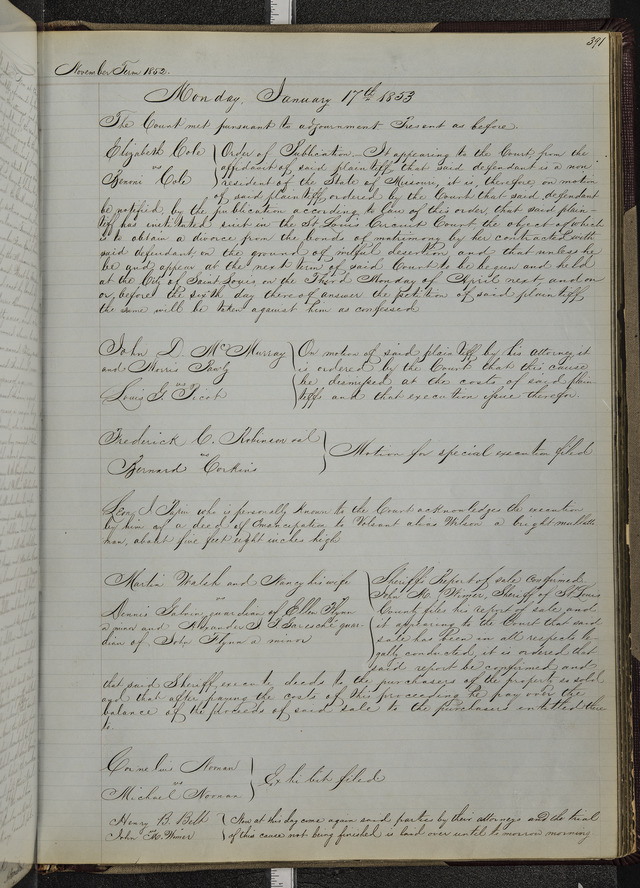 391
November Term 1852.
Monday, January 17th 1853
The Court met pursuant to adjournment Present as before.
Elizabeth Cote
vs
Benoni Cote
Order of Publication.— It appearing to the Court from the
affidavit of said plaintiff that said defendant is a non
resident of the State of Missouri, it is, therefore, on motion
of said plaintiff ordered by the Court that said defendant
be notified, by the publication according to law of this order, that said plain-
tiff has instituted suit in the St Louis Circuit Court the object of which
is to obtain a divorce from the bonds of matrimony by her contracted with
said defendant, on the ground of wilful desertion and that unless he
be and appear at the next term of said Court to be begun and held
at the City of Saint Louis, on the Third Monday of April next, and on
or before the sixth day thereof answer the petition of said plaintiff
the same will be taken against him as confessed
John D. McMurray
and Morris
vs
Louis G. Picot
On motion of said plaintiff by his attorney it
is ordered by the Court that this cause
be dismissed at the costs of said plain-
tiffs and that execution issue therefor.
Frederick C. Robinson et al
vs
Bernard Corkins
Motion for special execution filed
who is personally known to the Court acknowledges the execution
by him of a deed of Emancipation to alias Wilson a bright mulatto
man, about five feet eight inches high
Martin Walsh and Nancy his wife
vs
Dennis Galvin, guardian of Ellen Flynn
a minor and Alexander J. P. Garesché guar-
dian of John Flynn a minor
Sheriffs Report of sale confirmed
John M. Wimer, Sheriff of St Louis
County files his report of sale and
it appearing to the Court that said
sale has been in all respects le-
gally conducted, it is ordered that
said report be confirmed and
that said Sheriff execute deeds to the purchasers of the property so sold
and that after paying the costs of this proceeding he pay over the
balance of the proceeds of said sale to the purchasers entitled there
to.
Cornelius Noonan
vs
Michael Noonan
Exhibit filed
Henry B. Belt
John M. Wimer
Now at this day come again said parties by their attorneys and the trial
of this cause not being finished is laid over until to morrow morning